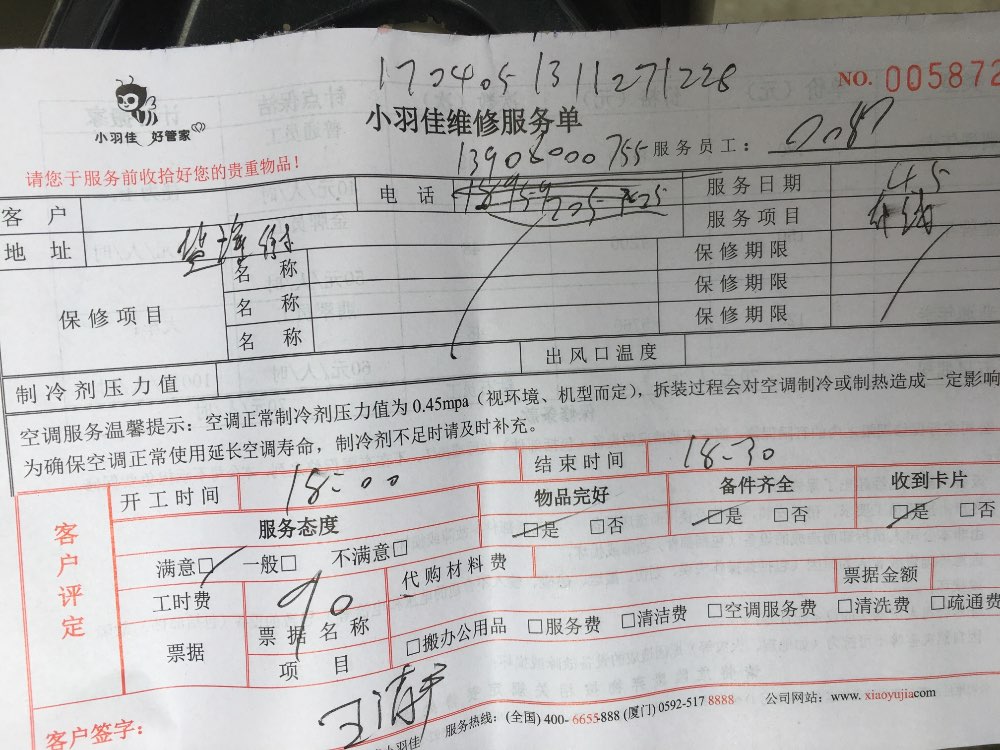 170405131127 1228
NO. 005872
小羽佳 好管家
小羽佳维修服务单
请您于服务前收拾好您的贵重物品！
13906000755 服务员工：
客 户 电 话 服务日期 4.5
地 址 服务项目
保修项目 名 称 保修期限
名 称 保修期限
名 称 保修期限
制冷剂压力值 出风口温度
空调服务温馨提示：空调正常制冷剂压力值为 0.45mpa（视环境、机型而定），拆装过程会对空调制冷或制热造成一定影响
为确保空调正常使用延长空调寿命，制冷剂不足时请及时补充。
客户评定
开工时间 18:00 结束时间 18:30
服务态度 物品完好 备件齐全 收到卡片
满意□ 一般□ 不满意□ □是 □否 □是 □否 □是 □否
工时费 90 代购材料费 票据金额
票据 票据名称 □搬办公用品 □服务费 □清洁费 □空调服务费 □清洗费 □疏通费
项 目
客户签字：
小羽佳 服务热线：(全国) 400- 6655-888 (厦门) 0592-517 8888 公司网站：www. xiaoyujia.com